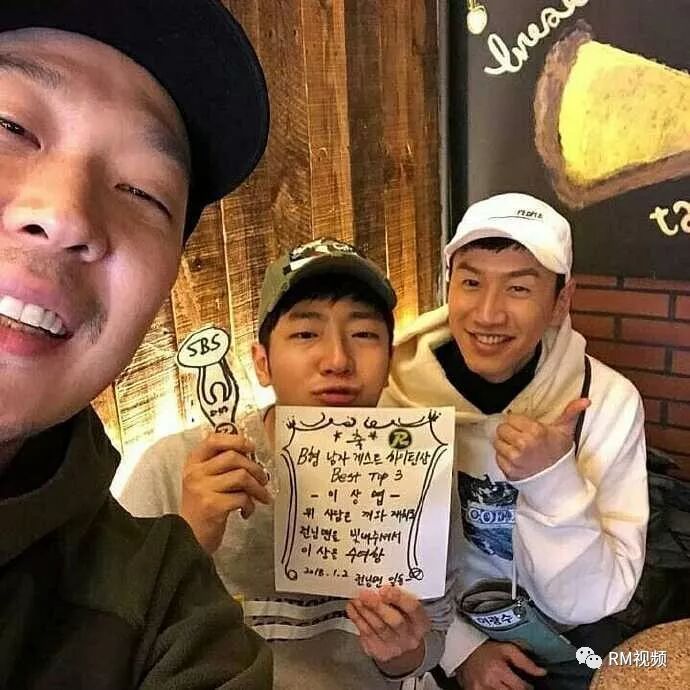 break
ta
PEOPLE
SBS
*축* R
B형 남자 게스트 하이틴상
Best Top 3
- 이상엽 -
위 사람은 끼와 재치로
런닝맨을 빛내주셔서
이 상을 수여함
2018. 1. 2 런닝맨 일동
이광수
RM视频